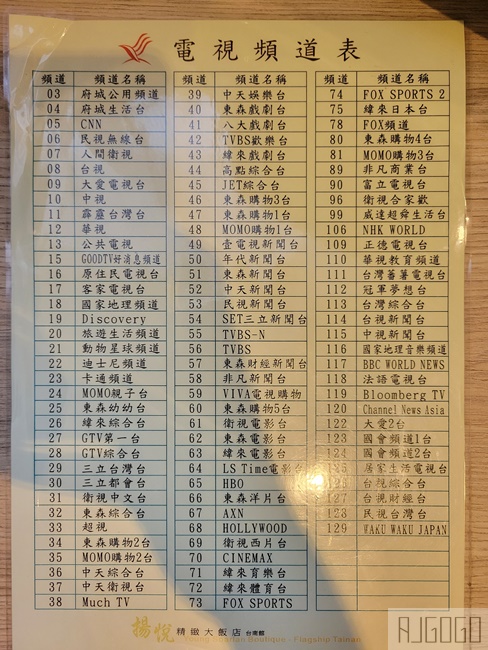 電視頻道表
頻道 頻道名稱
03 府城公用頻道
04 府城生活台
05 CNN
06 民視無線台
07 人間衛視
08 台視
09 大愛電視台
10 中視
11 霹靂台灣台
12 華視
13 公共電視
15 GOODTV好消息頻道
16 原住民電視台
17 客家電視台
18 國家地理頻道
19 Discovery
20 旅遊生活頻道
21 動物星球頻道
22 迪士尼頻道
23 卡通頻道
24 MOMO親子台
25 東森幼幼台
26 緯來綜合台
27 GTV第一台
28 GTV綜合台
29 三立台灣台
30 三立都會台
31 衛視中文台
32 東森綜合台
33 超視
34 東森購物2台
35 MOMO購物2台
36 中天綜合台
37 中天衛視台
38 Much TV
頻道 頻道名稱
39 中天娛樂台
40 東森戲劇台
41 八大戲劇台
42 TVBS歡樂台
43 緯來戲劇台
44 高點綜合台
45 JET綜合台
46 東森購物3台
47 東森購物1台
48 MOMO購物1台
49 壹電視新聞台
50 年代新聞台
51 東森新聞台
52 中天新聞台
53 民視新聞台
54 SET三立新聞台
55 TVBS-N
56 TVBS
57 東森財經新聞台
58 非凡新聞台
59 VIVA電視購物
60 東森購物5台
61 衛視電影台
62 東森電影台
63 緯來電影台
64 LS Time電影台
65 HBO
66 東森洋片台
67 AXN
68 HOLLYWOOD
69 衛視西片台
70 CINEMAX
71 緯來育樂台
72 緯來體育台
73 FOX SPORTS
頻道 頻道名稱
74 FOX SPORTS 2
75 緯來日本台
78 FOX頻道
80 東森購物4台
81 MOMO購物3台
89 非凡商業台
90 富立電視台
96 衛視合家歡
99 威達超舜生活台
106 NHK WORLD
109 正德電視台
110 華視教育頻道
111 台灣蕃薯電視台
112 冠軍夢想台
113 台灣綜合台
114 台視新聞台
115 中視新聞台
116 國家地理音樂頻道
117 BBC WORLD NEWS
118 法語電視台
119 Bloomberg TV
120 Channel News Asia
122 大愛2台
123 國會頻道1台
124 國會頻道2台
125 居家生活電視台
126 台視綜合台
127 台視財經台
128 民視台灣台
129 WAKU WAKU JAPAN
揚悅 精緻大飯店 台南館
Boutique - Flagship Tainan
AJGOGO